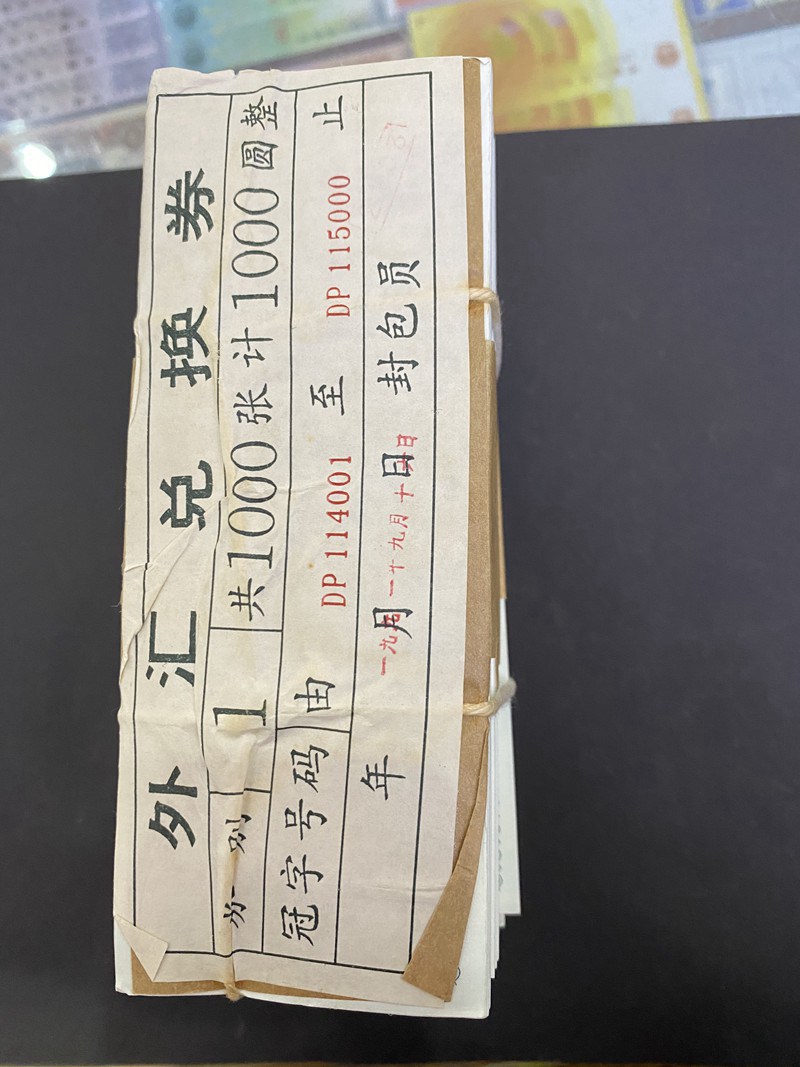 外汇兑换券
券别 1 共1000张计1000圆整
冠字号码 由 DP 114001 至 DP 115000 止
年 月 日 封包员